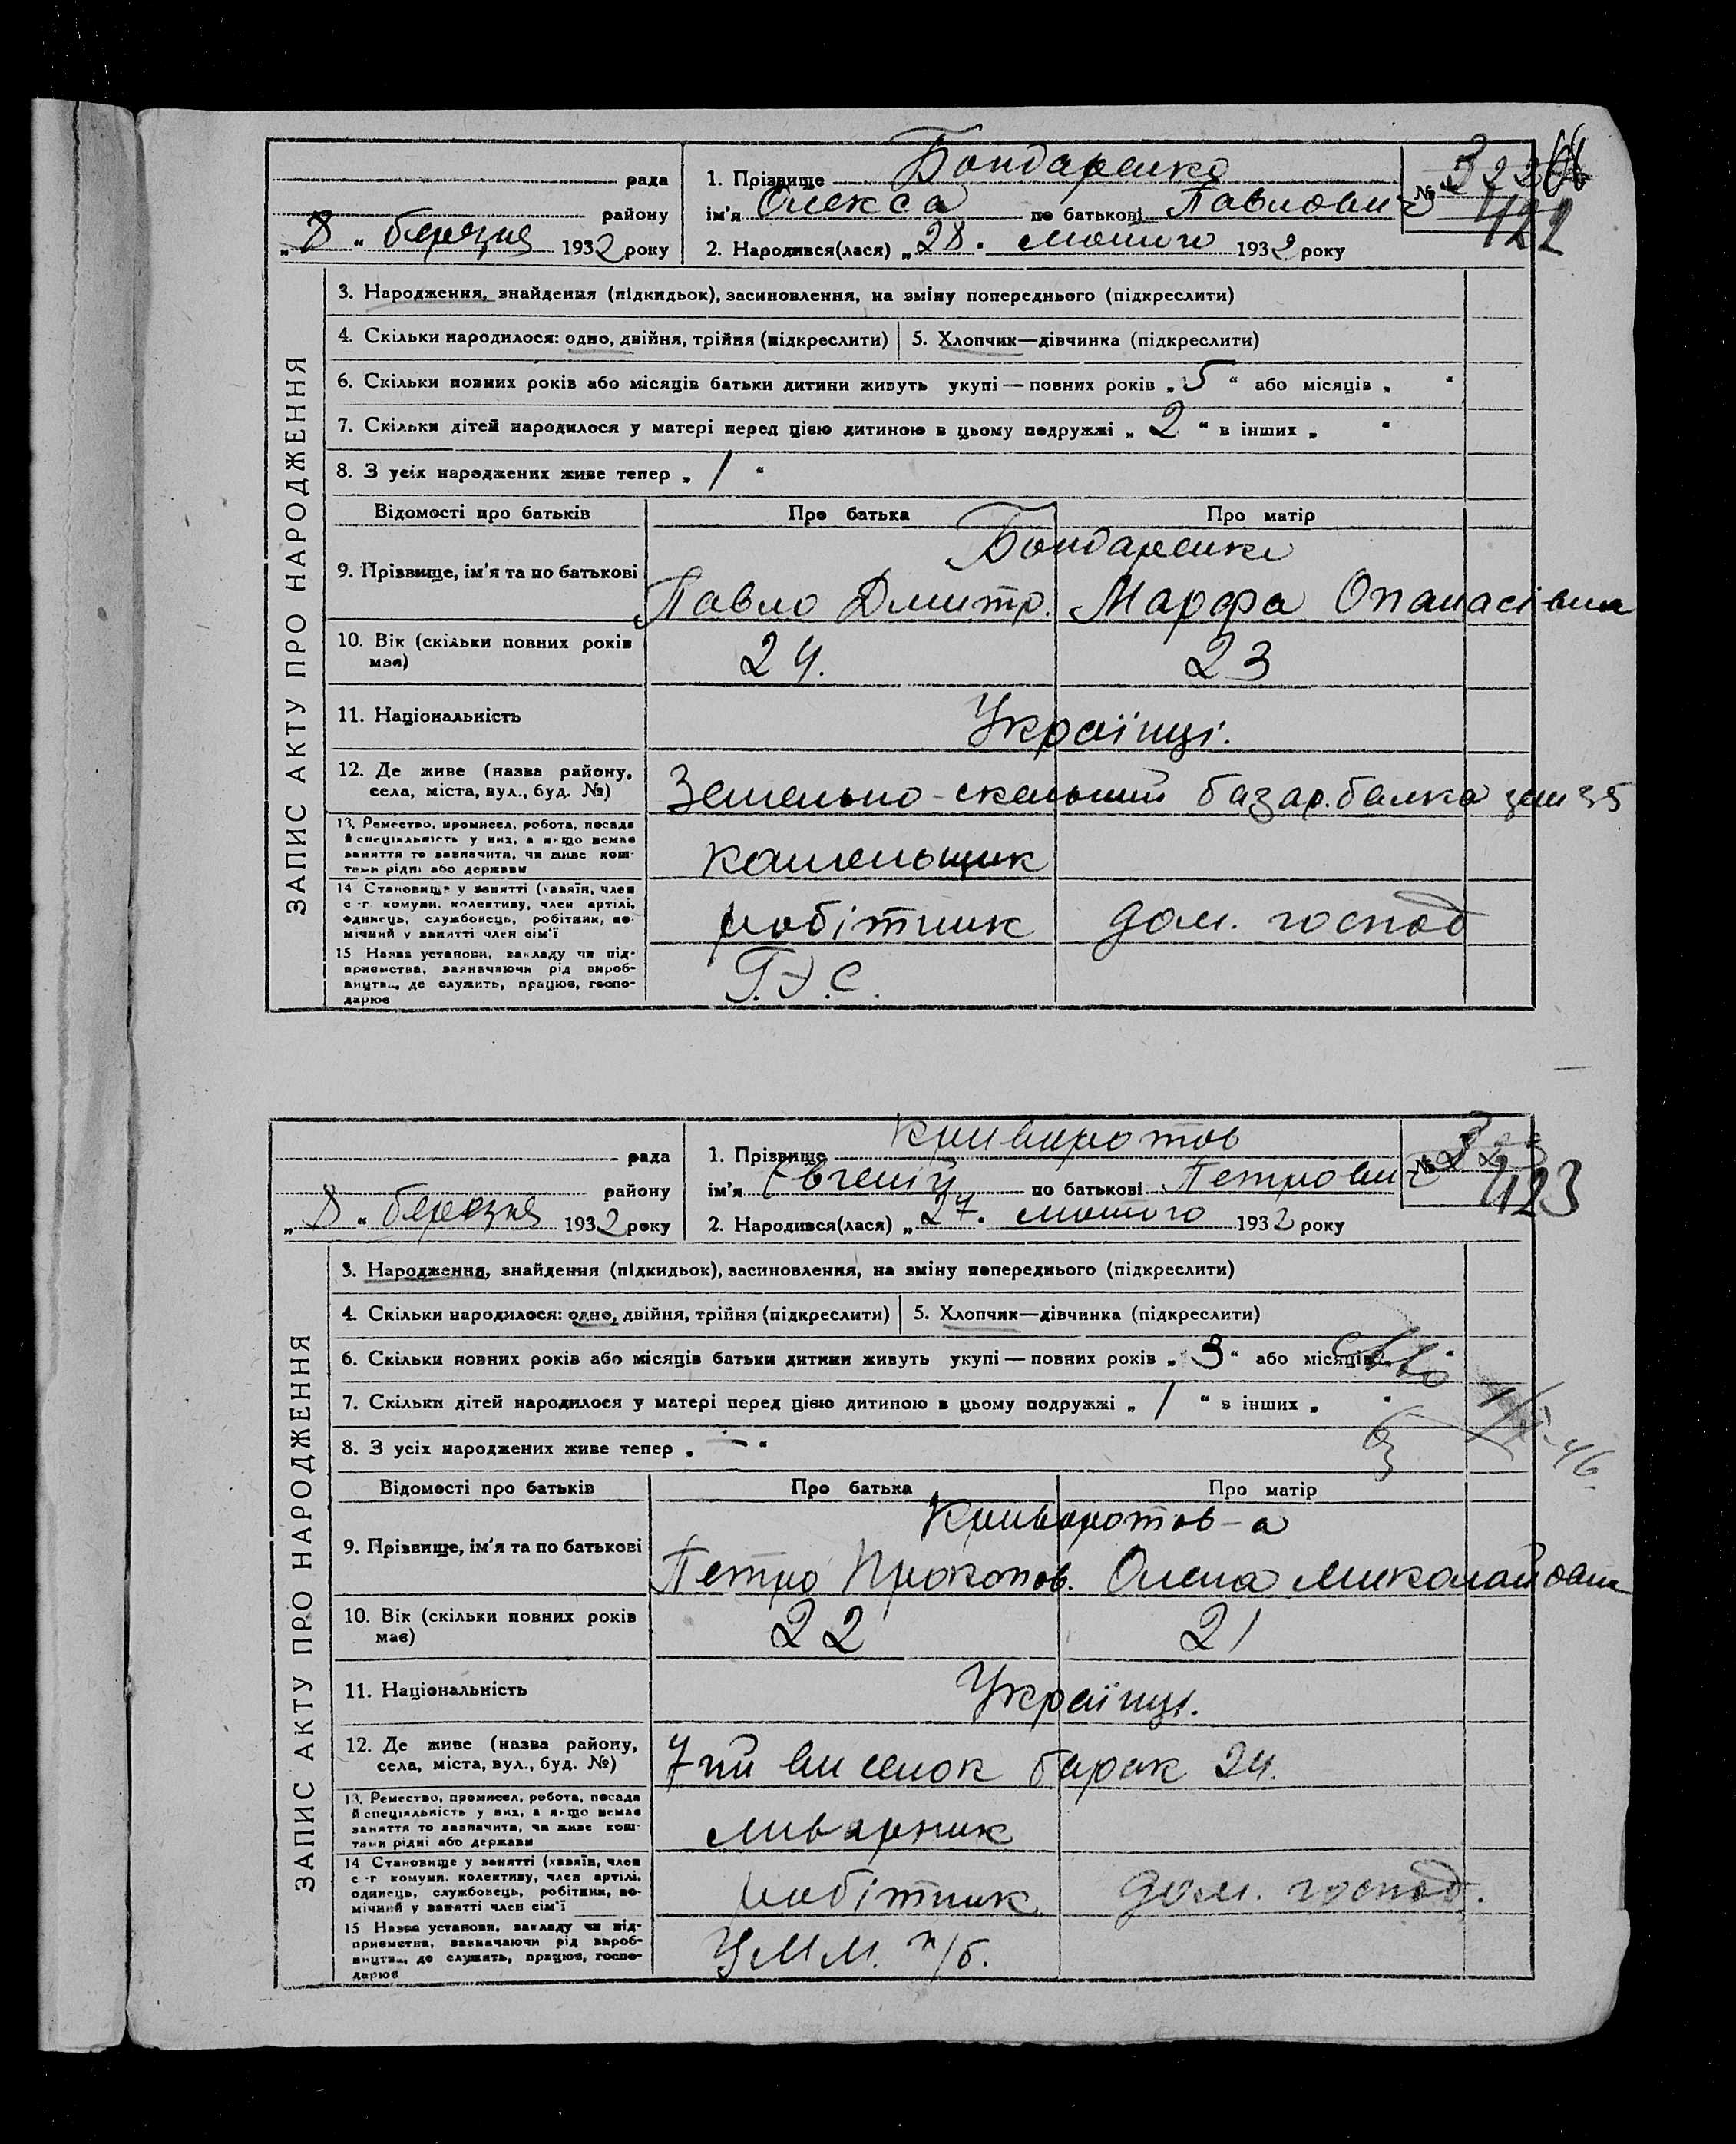 рада
району
„8“ березня 1932 року
1. Прізвище Бондаренко
ім'я Олекса по батькові Павлович
2. Народився(лася) „28. лютого 1932 року
№ 422
ЗАПИС АКТУ ПРО НАРОДЖЕННЯ
3. Народження, знайдення (підкидьок), засиновлення, на зміну попереднього (підкреслити)
4. Скільки народилося: одно, двійня, трійня (підкреслити)
5. Хлопчик—дівчинка (підкреслити)
6. Скільки повних років або місяців батьки дитини живуть укупі — повних років „5“ або місяців „ “
7. Скільки дітей народилося у матері перед цією дитиною в цьому подружжі „2“ в інших „ “
8. З усіх народжених живе тепер „1“
Відомості про батьків
Про батька
Про матір
9. Прізвище, ім'я та по батькові
Бондаренки
Павло Дмитр.
Марфа Опанасівна
10. Вік (скільки повних років має)
24.
23
11. Національність
Українці.
12. Де живе (назва району,
села, міста, вул., буд. №)
базар. балка зем 35
13. Ремество, промисел, робота, посада
й спеціяльність у них, а якщо немає
заняття то зазначити, чи живе кош-
тами рідні або держави
каменьщик
14 Становище у занятті (хазяїн, член
с.-г. комуни, колективу, член артілі,
одинець, службовець, робітник, по-
мічний у занятті член сім'ї
робітник
дом. господ
15 Назва установи, закладу чи під-
приємства, зазначаючи рід вироб-
ництва, де служить, працює, госпо-
дарює
Г.Э.С.
рада
району
„8“ березня 1932 року
1. Прізвище Криворотов
ім'я Євгеній по батькові Петрович
2. Народився(лася) „27. лютого 1932 року
№ 323
423
ЗАПИС АКТУ ПРО НАРОДЖЕННЯ
3. Народження, знайдення (підкидьок), засиновлення, на зміну попереднього (підкреслити)
4. Скільки народилося: одно, двійня, трійня (підкреслити)
5. Хлопчик—дівчинка (підкреслити)
6. Скільки повних років або місяців батьки дитини живуть укупі — повних років „3“ або місяців „
7. Скільки дітей народилося у матері перед цією дитиною в цьому подружжі „1“ в інших „ “
8. З усіх народжених живе тепер „—“
Відомості про батьків
Про батька
Про матір
9. Прізвище, ім'я та по батькові
Криворотов-а
Петро Прокопов.
Олена Миколаївна
10. Вік (скільки повних років має)
22
21
11. Національність
Українці.
12. Де живе (назва району,
села, міста, вул., буд. №)
7-ий виселок барак 24.
13. Ремество, промисел, робота, посада
й спеціяльність у них, а якщо немає
заняття то зазначити, чи живе кош-
тами рідні або держави
ливарник
14 Становище у занятті (хазяїн, член
с.-г. комуни, колективу, член артілі,
одинець, службовець, робітник, по-
мічний у занятті член сім'ї
робітник
дом. господ.
15 Назва установи, закладу чи під-
приємства, зазначаючи рід вироб-
ництва, де служить, працює, госпо-
дарює
ЦММ. п/б.